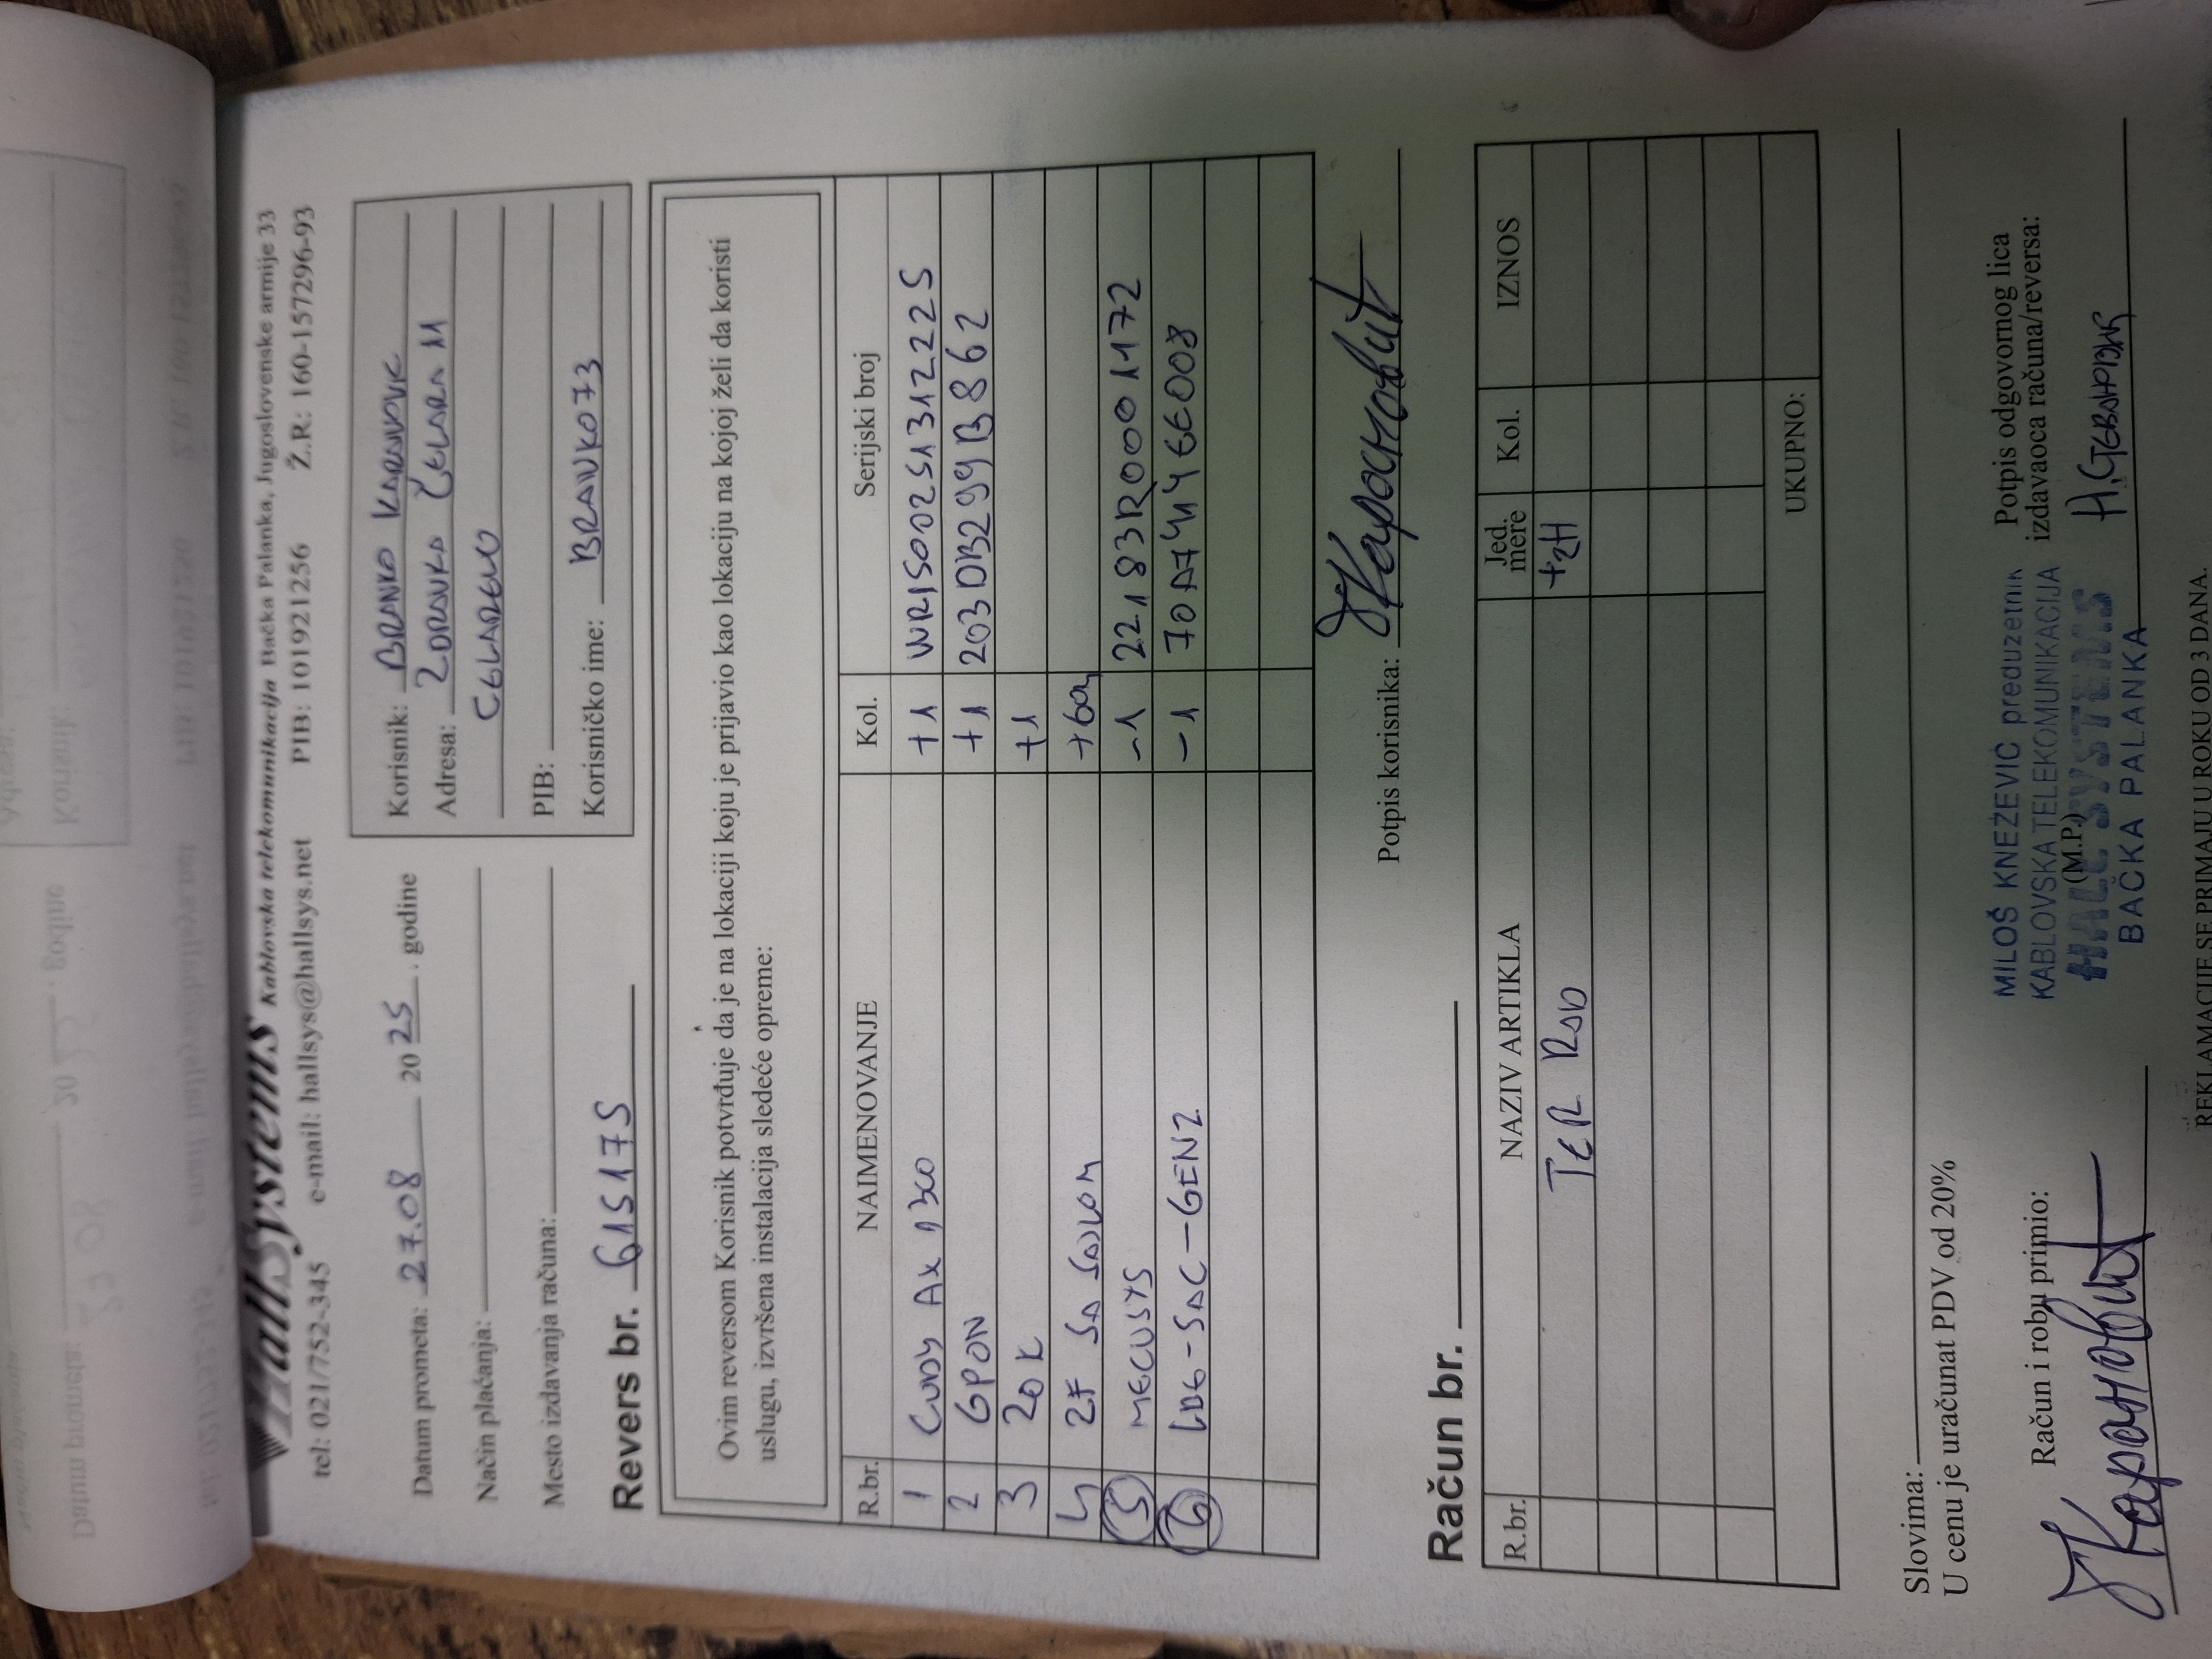 HallSystems Kablovska telekomunikacija Bačka Palanka, Jugoslovenske armije 33
tel: 021/752-345 e-mail: hallsys@hallsys.net PIB: 101921256 Ž.R.: 160-157296-93
Datum prometa: 27.08 2025. godine
Način plaćanja:
Mesto izdavanja računa:
Korisnik: BRANKO KARANOVIC
Adresa: ZDRAVKA ČELARA 11
CELAREVO
PIB:
Korisničko ime: BRANKO73
Revers br. 615175
Ovim reversom Korisnik potvrđuje da je na lokaciji koju je prijavio kao lokaciju na kojoj želi da koristi
uslugu, izvršena instalacija sledeće opreme:
R.br. NAIMENOVANJE Kol. Serijski broj
1 CUDY AX 1300 +1 WR1500251312225
2 GPON +1 203DB299B862
3 ZOK +1
4 2F SA SAJLOM +60m
5 MECUSYS -1 22183R0001172
6 LDG-SAC-GEN2 -1 70A74146E008
Potpis korisnika: Карановић
Račun br.
R.br. NAZIV ARTIKLA Jed. mere Kol. IZNOS
TER RAD +2H
UKUPNO:
Slovima:
U cenu je uračunat PDV od 20%
Račun i robu primio:
Карановић
MILOŠ KNEŽEVIĆ preduzetnik
KABLOVSKA TELEKOMUNIKACIJA
(M.P.)
HALL SYSTEMS
BAČKA PALANKA
Potpis odgovornog lica
izdavaoca računa/reversa:
REKLAMACIJE SE PRIMAJU U ROKU OD 3 DANA.